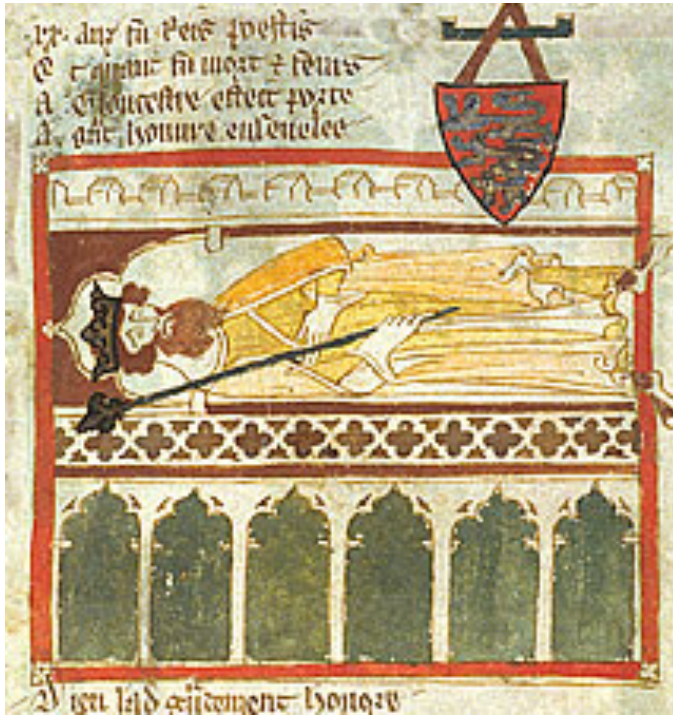 xx. anz fu Reis poestis
E t qūant fu mort ⁊ feniz
A Gloucestre esteet porte
A gñt honure enseuelee
D ieu lad gñtement honure